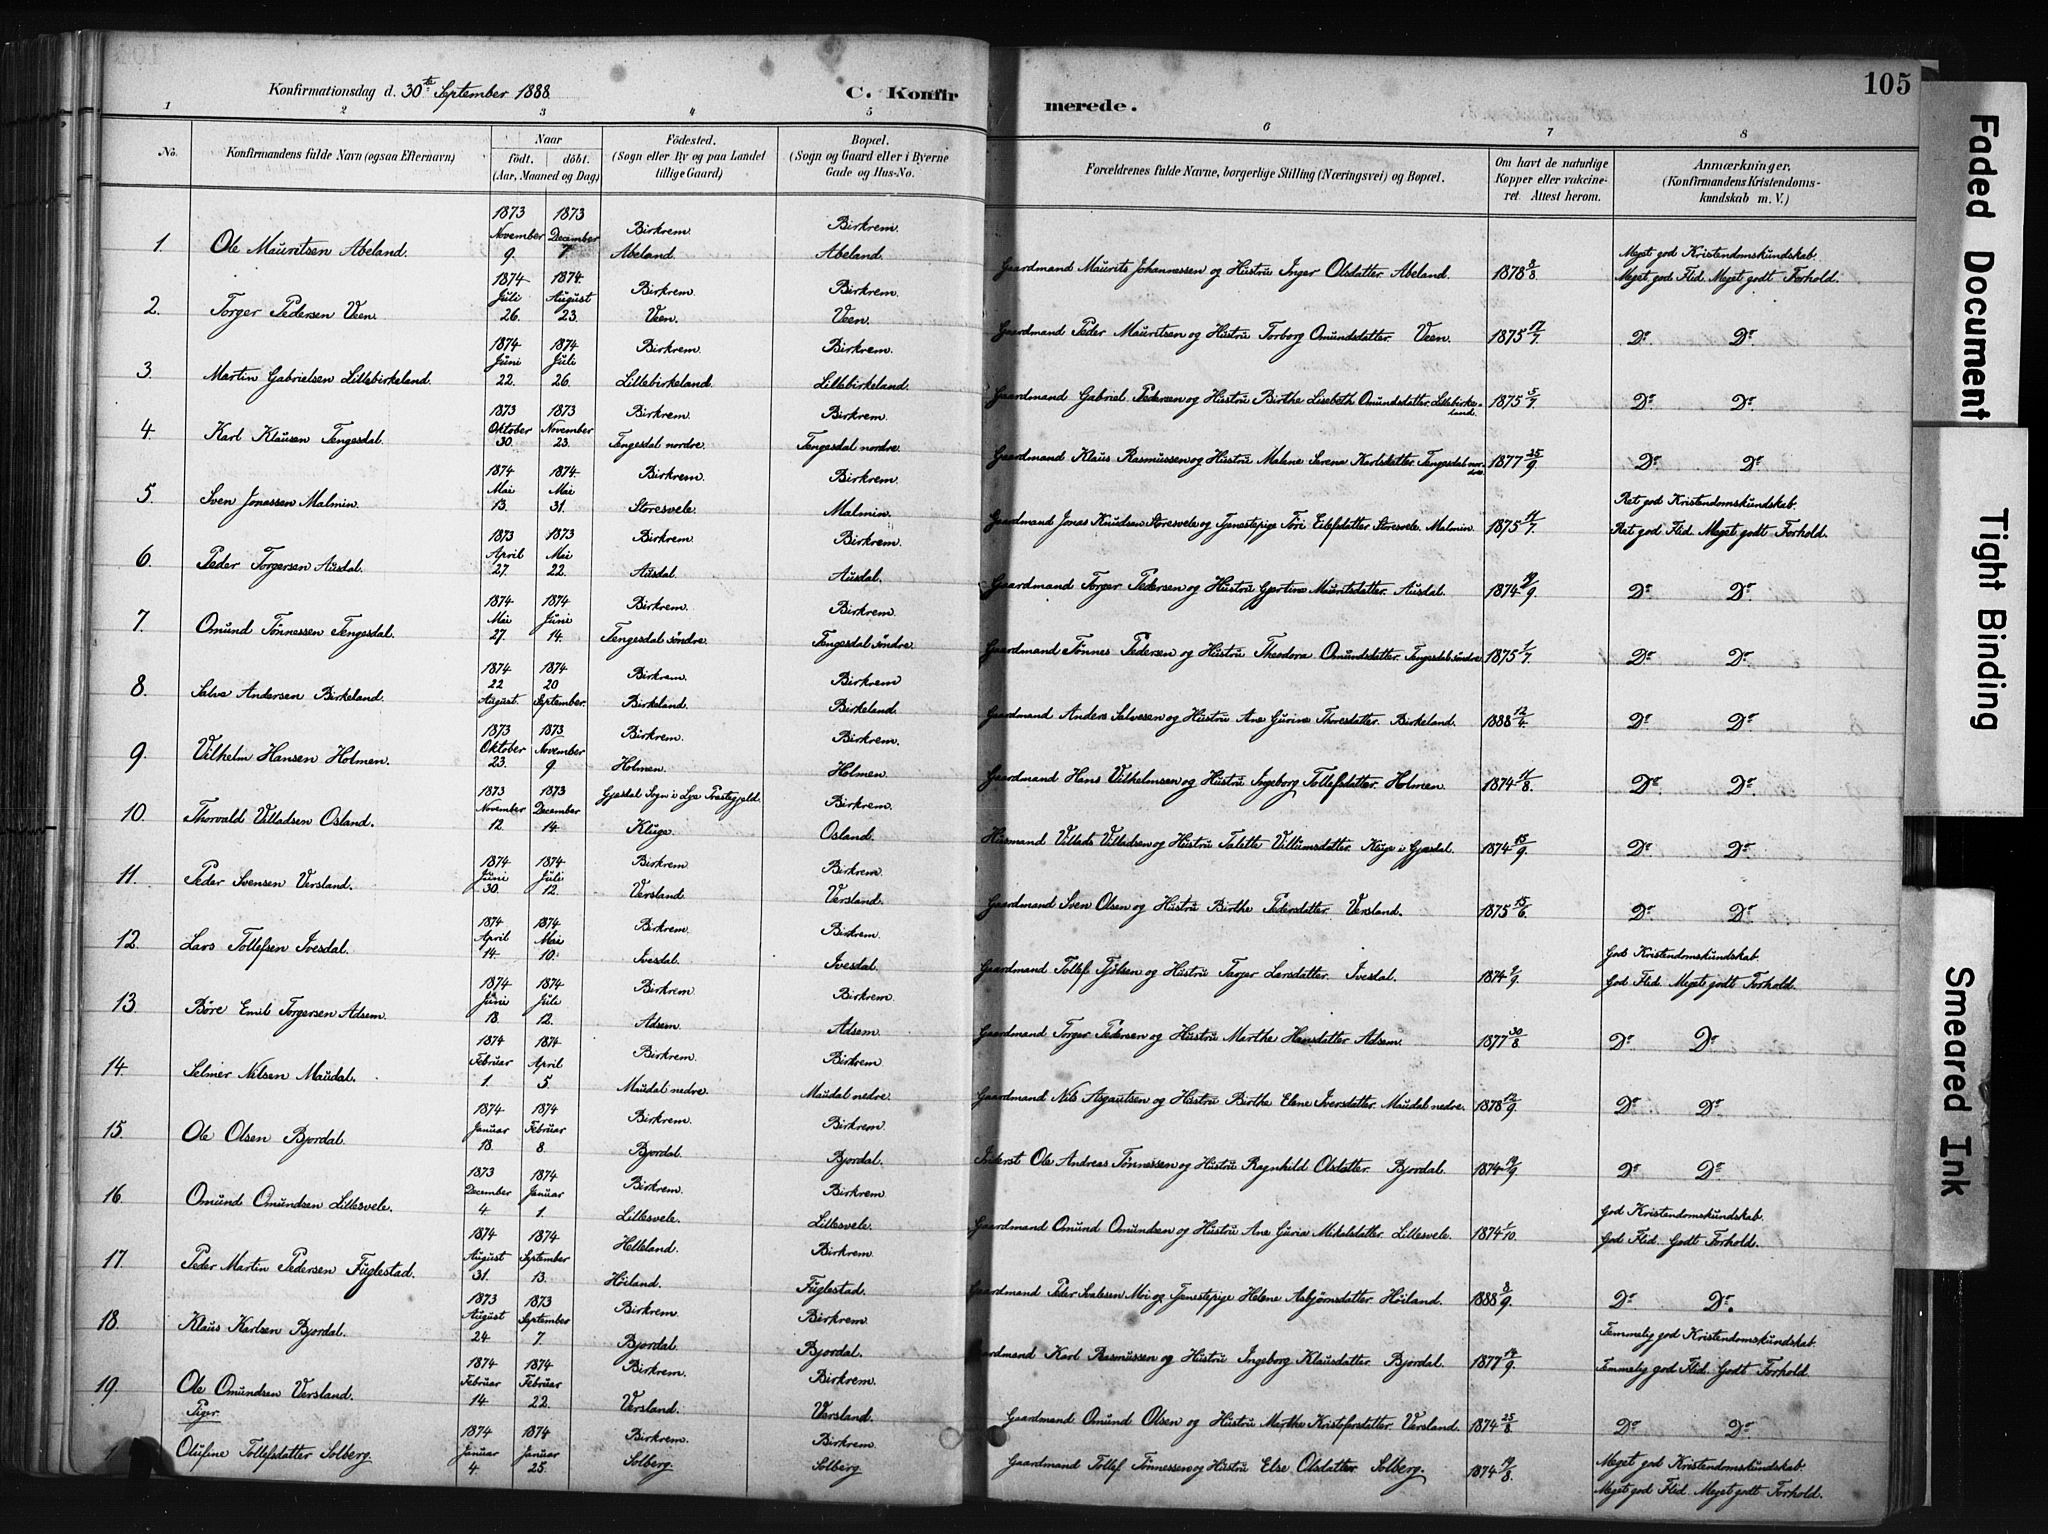 105
Konfirmationsdag d. 30te September 1888.
C. Konfirmerede.
1 2 3 4 5 6 7 8
No. Konfirmandens fulde Navn (ogsaa Efternavn) Naar født. døbt. (Aar, Maaned og Dag) Fødested. (Sogn eller By og paa Landet tillige Gaard) Bopæl. (Sogn og Gaard eller i Byerne Gade og Hus-No. Forældrenes fulde Navne, borgerlige Stilling (Næringsvei) og Bopæl. Om havt de naturlige Kopper eller vakcineret. Attest herom. Anmærkninger. (Konfirmandens Kristendomskundskab m. V.)
1. Ole Mauritsen Abeland. 1873 November 9. 1873 December 7. Birkrem. Abeland. Birkrem. Abeland. Gaardmand Maurits Johannessen og Hustru Inger Olsdatter Abeland. 1878 8/8. Meget god Kristendomskundskab. Meget god Flid. Meget godt Forhold.
2. Torger Pedersen Veen. 1874 Juli 26. 1874. August 23. Birkrem. Veen. Birkrem. Veen. Gaardmand Peder Mauritsen og Hustru Torborg Omundsdatter Veen. 1875 17/7. Do Do
3. Martin Gabrielsen Lillebirkeland. 1874 Juni 22. 1874 Juli 26. Birkrem. Lillebirkeland. Birkrem. Lillebirkeland. Gaardmand Gabriel Pedersen og Hustru Birthe Lisebeth Omundsdatter Lillebirkeland. 1875 5/7. Do Do
4. Karl Klausen Tengesdal. 1873 Oktober 30. 1873 November 23. Birkrem. Tengesdal nordre. Birkrem. Tengesdal nordre. Gaardmand Klaus Rasmussen og Hustru Malene Serena Karlsdatter Tengesdal nordre 1877 25/9. Do Do
5. Sven Jonassen Malmin. 1874 Mai 13. 1874. Mai 31. Birkrem. Storesvele. Birkrem. Malmin. Gaardmand Jonas Knudsen Storesvele og Tjenestepige Tøri Eilefsdatter Storesvele, Malmin. 1875 11/7. Ret god Kristendomskundskab. Ret god Flid. Meget godt Forhold.
6. Peder Torgersen Ausdal. 1873 April 27. 1873 Mai 22. Birkrem. Ausdal. Birkrem. Ausdal. Gaardmand Torger Pedersen og Hustru Gjertine Mauritsdatter. Ausdal. 1874 19/9. Do Do
7. Omund Tønnessen Tengesdal. 1874 Mai 27. 1874 Juni 14. Birkrem. Tengesdal søndre. Birkrem. Tengesdal søndre. Gaardmand Tønnes Pedersen og Hustru Theodora Omundsdatter. Tengesdal søndre 1875 1/7. Do Do
8. Salve Andersen Birkeland. 1874 22 August. 1874 20 September. Birkrem. Birkeland. Birkrem Birkeland. Gaardmand Anders Salvesen og Hustru Ane Gurine Thoresdatter. Birkeland. 1888 12/4. Do Do
9. Vilhelm Hansen Holmen. 1873 Oktober 23. 1873 November 9 Birkrem. Holmen. Birkrem. Holmen Gaardmand Hans Vilhelmsen og Hustru Ingeborg Tollefsdatter. Holmen. 1874 11/8. Do Do
10. Thorvald Villadsen Osland. 1873 November 12. 1873 December 14. Gjæsdal Sogn i Lye Præstegjeld. Kluge Birkrem. Osland. Husmand Villads Villadsen og Hustru Talette Villumsdatter. Kluge i Gjæsdal. 1874 15/9. Do Do
11. Peder Svensen Versland. 1874 Juni 30. 1874 Juli 12. Birkrem Versland Birkrem. Versland. Gaardmand Sven Olsen og Hustru Birthe Pedersdatter. Versland. 1875 15/6. Do Do
12. Lars Tollefsen Ivesdal. 1874 April 14. 1874 Mai 10. Birkrem. Ivesdal. Birkrem. Ivesdal. Gaardmand Tollef Tjølsen og Hustru Targer Larsdatter. Ivesdal. 1874 9/9. God Kristendomskundskab. God Flid. Meget godt Forhold.
13. Børe Emil Torgersen Adsem. 1874 Juni 18. 1874 Juli 12. Birkrem. Adsem. Birkrem. Adsem. Gaardmand Torger Pedersen og Hustru Marthe Hansdatter Adsem. 1877 30/8. Do Do
14. Selmer Nilsen Maudal. 1874 Februar 1. 1874 April 5. Birkrem. Maudal nedre. Birkrem. Maudal nedre. Gaardmand Nils Asgautsen og Hustru Birthe Elene Iversdatter. Maudal nedre. 1878 12/9. Do Do
15. Ole Olsen Bjordal. 1874 Januar 18. 1874 Februar 8 Birkrem. Bjordal. Birkrem. Bjordal. Inderst Ole Andreas Tønnessen og Hustru Ragnhild Olsdatter. Bjordal. 1874 19/9. Do Do
16. Omund Omundsen Lillesvele. 1873 December 4 1874 Januar 1. Birkrem. Lillesvele. Birkrem. Lillesvele. Gaardmand Omund Omundsen og Hustru Ane Guria Mikalsdatter. Lillesvele. 1874 1/10. God Kristendomskundskab. God Flid. Godt Forhold.
17. Peder Martin Pedersen Fuglestad. 1874 August 31. 1874 September 13. Helleland. Høiland. Birkrem. Fuglestad. Gaardmand Peder Svalesen Moi og Tjenestepige Helene Asbjørnsdatter. Høiland. 1888 8/9. Do Do
18. Klaus Karlsen Bjordal. 1873 August 24 1873 September 7 Birkrem. Bjordal. Birkrem. Bjordal. Gaardmand Karl Rasmussen og Hustru Ingeborg Klausdatter. Bjordal. 1877 14/9. Temmelig god Kristendomskundskab. Temmelig god Flid. Godt Forhold.
19. Ole Omundsen Versland. 1874 Februar 14 1874 Februar 22. Birkrem. Versland. Birkrem. Versland. Gaardmand Omund Olsen og Hustru Marthe Kristofersdatter. Versland. 1874 25/8. Do Do
Piger.
1 Olufine Tollefsdatter Solberg. 1874 Januar 4 1874 Januar 25. Birkrem. Solberg. Birkrem. Solberg Gaardmand Tollef Tønnessen og Hustru Else Olsdatter Solberg. 1874 19/8. Meget god Kristendomskundskab. Meget god Flid. Meget godt Forhold.
Faded Document
Tight Binding
Smeared Ink